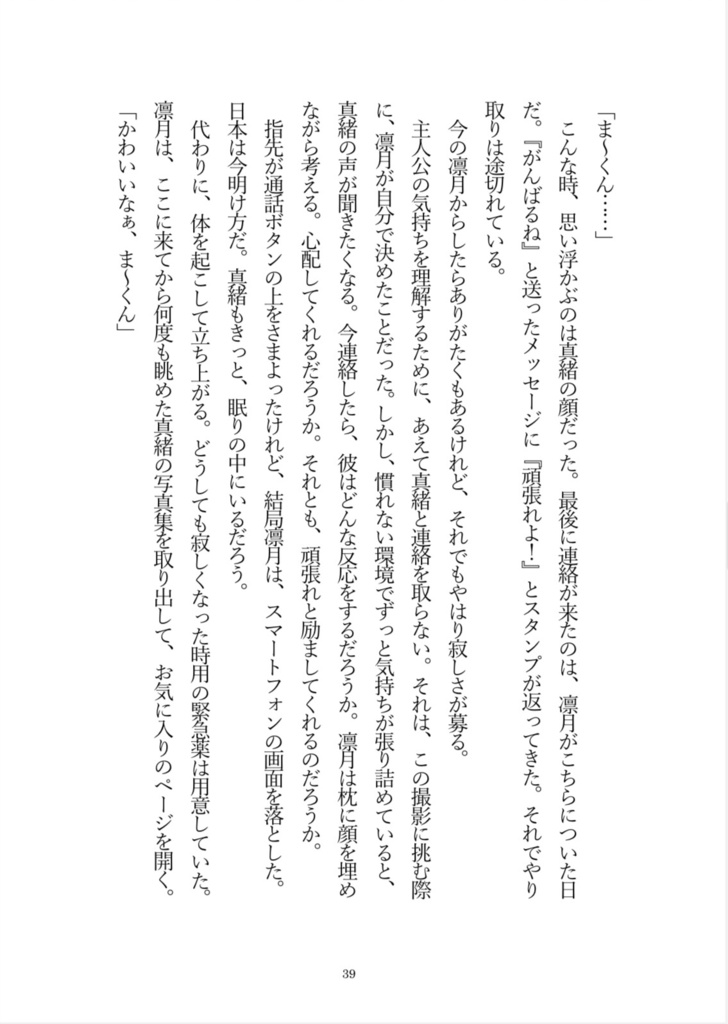 「ま～くん……」
　こんな時、思い浮かぶのは真緒の顔だった。最後に連絡が来たのは、凛月がこちらについた日
だ。『がんばるね』と送ったメッセージに『頑張れよ！』とスタンプが返ってきた。それでやり
取りは途切れている。
　今の凛月からしたらありがたくもあるけれど、それでもやはり寂しさが募る。
　主人公の気持ちを理解するために、あえて真緒と連絡を取らない。それは、この撮影に挑む際
に、凛月が自分で決めたことだった。しかし、慣れない環境でずっと気持ちが張り詰めていると、
真緒の声が聞きたくなる。今連絡したら、彼はどんな反応をするだろうか。凛月は枕に顔を埋め
ながら考える。心配してくれるだろうか。それとも、頑張れと励ましてくれるのだろうか。
　指先が通話ボタンの上をさまよったけれど、結局凛月は、スマートフォンの画面を落とした。
日本は今明け方だ。真緒もきっと、眠りの中にいるだろう。
　代わりに、体を起こして立ち上がる。どうしても寂しくなった時用の緊急薬は用意していた。
凛月は、ここに来てから何度も眺めた真緒の写真集を取り出して、お気に入りのページを開く。
「かわいいなぁ、ま～くん」
39